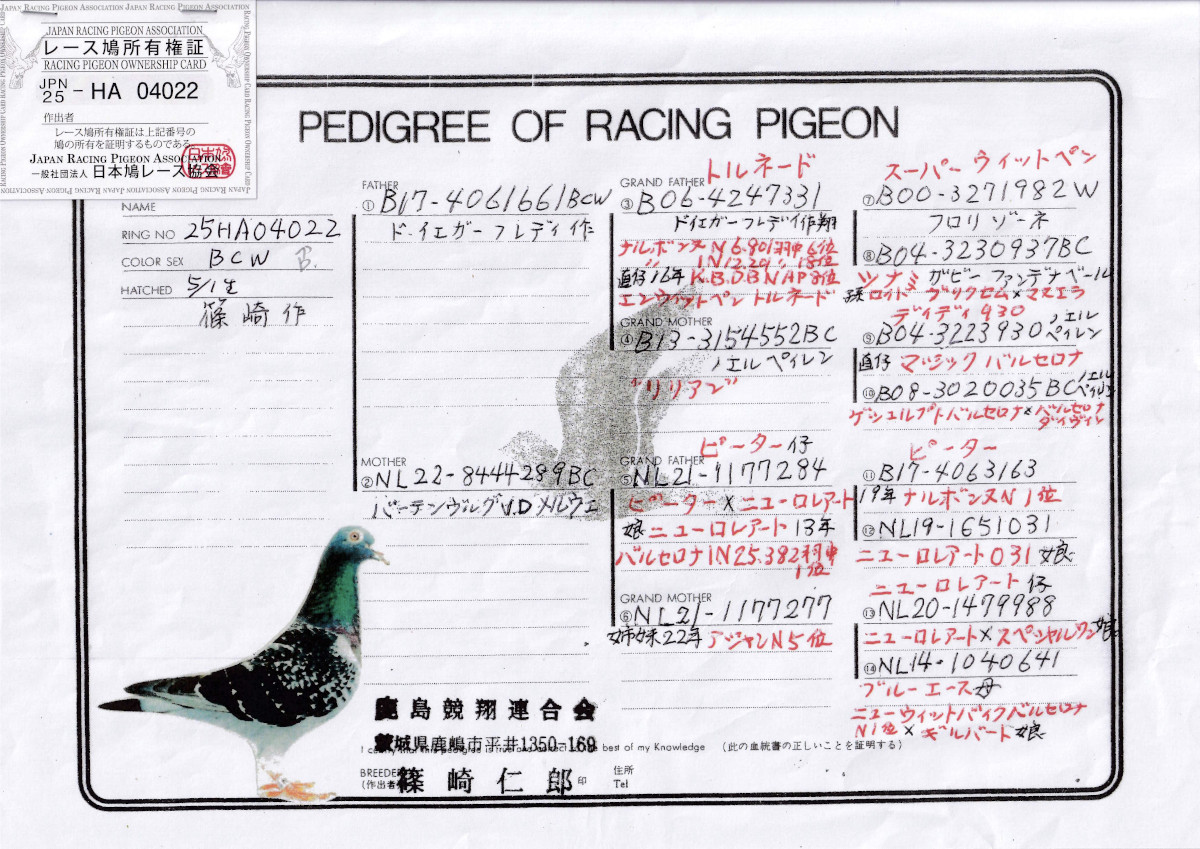 JAPAN RACING PIGEON ASSOCIATION
レース鳩所有権証
RACING PIGEON OWNERSHIP CARD
JPN
25 - HA 04022
作出者
レース鳩所有権証は上記番号の
鳩の所有を証明するものである。
JAPAN RACING PIGEON ASSOCIATION
一般社団法人 日本鳩レース協会
PEDIGREE OF RACING PIGEON
NAME
RING NO 25HA04022
COLOR SEX BCW B.
HATCHED 5/1生
篠崎作
FATHER
① B17-4061661BCW
ド・イエガーフレディ作
MOTHER
② NL22-8444289BC
バーテンヴルグV.Dメルウェ
GRAND FATHER トルネード
③ B06-4247331
ドイエガーフレデイ作翔
ナルボンヌN6.801羽中6位
〃 IN12.201〃18位
直仔16年K.B.D.B N AP8位
エンウィットペントルネード
GRAND MOTHER
④ B13-3154552BC
ノエルペイレン
"リリアン"
ピーター仔
GRAND FATHER
⑤ NL21-1177284
ピーター×ニューロレアート
娘ニューロレアート13年
バルセロナIN25.382羽中
1位
GRAND MOTHER
⑥ NL21-1177277
姉妹22年アジャンN5位
スーパーウィットペン
⑦ B00-3271982W
フロリゾーネ
⑧ B04-3230937BC
ツナミ ガビーファンデナベール
孫ロイドヴリクセム×マヌエラ
デイデイ930
⑨ B04-3223930 ノエルペイレン
直仔マジックバルセロナ
⑩ B08-3020035BC ノエルペイレン
ゲシェルプトバルセロナ×バルセロナ
ダイヴィン
ピーター
⑪ B17-4063163
19年ナルボンヌN1位
⑫ NL19-1651031
ニューロレアート031娘
ニューロレアート仔
⑬ NL20-1479988
ニューロレアート×スペシャルワン娘
⑭ NL14-1040641
ブルーエース母
ニューウィットバイクバルセロナ
N1位×ギルバート娘
鹿島競翔連合会
茨城県鹿嶋市平井1350-169
best of my Knowledge (此の血統書の正しいことを証明する)
BREEDER
(作出者) 篠崎仁郎 印
住所
Tel